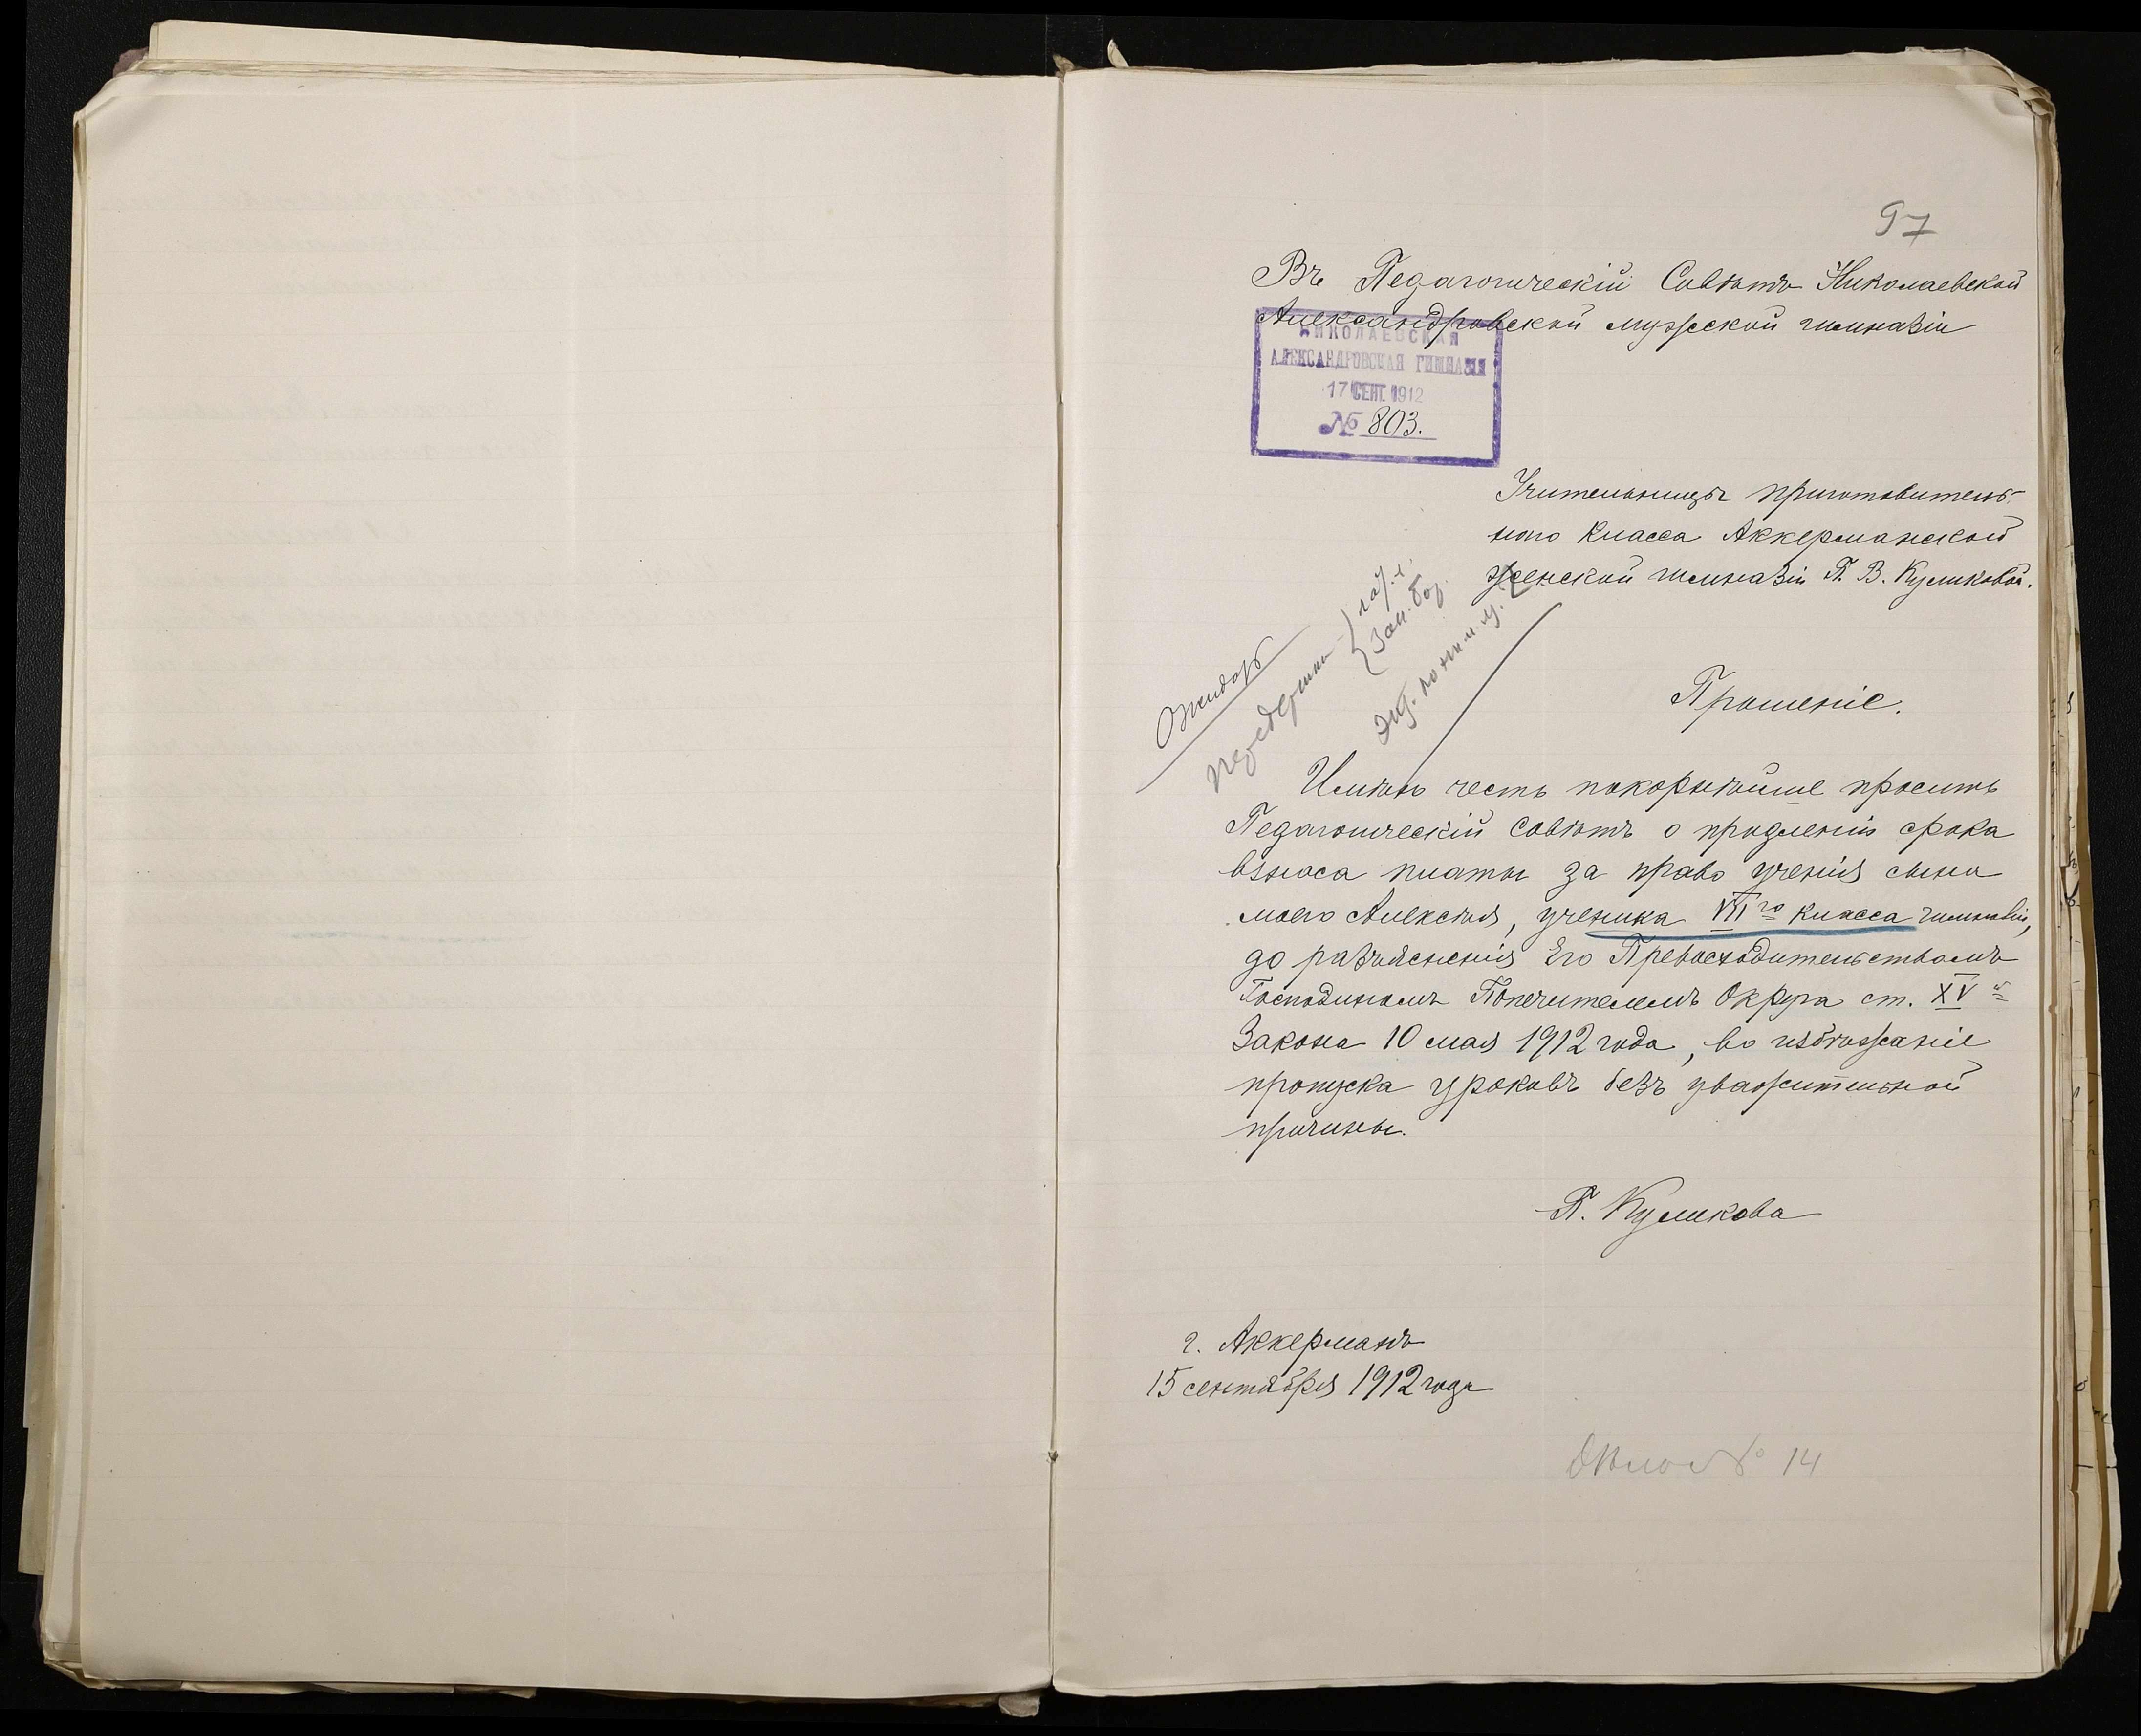 97
Въ Педагогическій Совѣтъ Николаевской
Александровской мужской гимназіи
НИКОЛАЕВСКАЯ
АЛЕКСАНДРОВСКАЯ ГИМНАЗІЯ
17 СЕНТ. 1912
№ 803.
Учительницы приготовитель-
наго класса Аккерманской
женской гимназіи П. В. Куликовой.
Прошеніе.
Имѣю честь покорнѣйше просить
Педагогическій Совѣтъ о продленіи срока
взноса платы за право ученія сына
моего Алексѣя, ученика VIII го класса гимназіи,
до разъясненія Его Превосходительствомъ
Господиномъ Попечителемъ Округа ст. XV й
Закона 10 мая 1912 года, во избѣжаніе
пропуска уроковъ безъ уважительной
причины.
П. Куликова
г. Аккерманъ
15 сентября 1912 года
Дѣло № 14